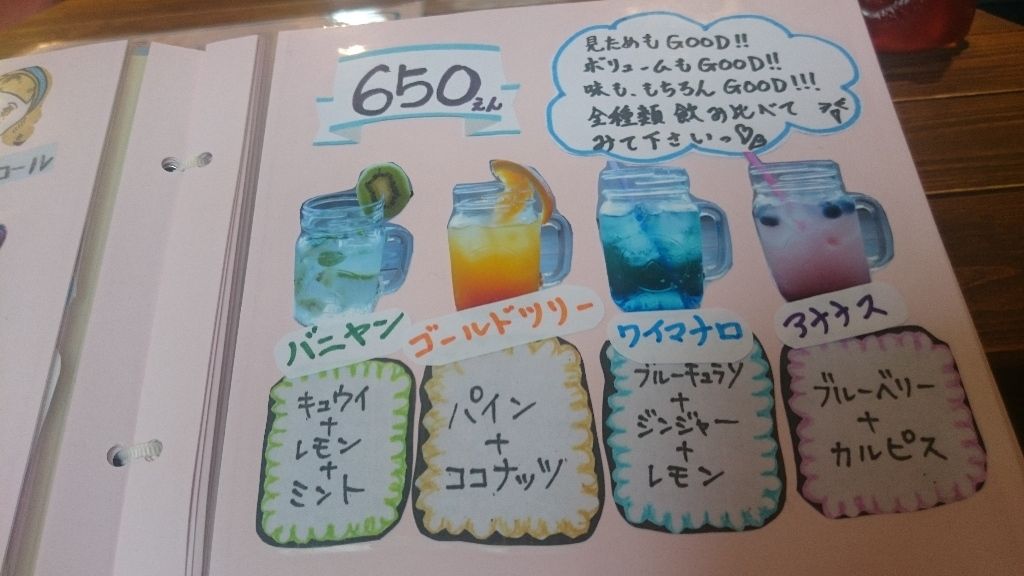 コール
650えん
見ためも GOOD!!
ボリュームも GOOD!!
味も、もちろん GOOD!!!
全種類 飲み比べて
みて下さいっ♡
バニヤン
ゴールドツリー
ワイマナロ
アナナス
キュウイ
+
レモン
+
ミント
パイン
+
ココナッツ
ブルーキュラソ
+
ジンジャー
+
レモン
ブルーベリー
+
カルピス